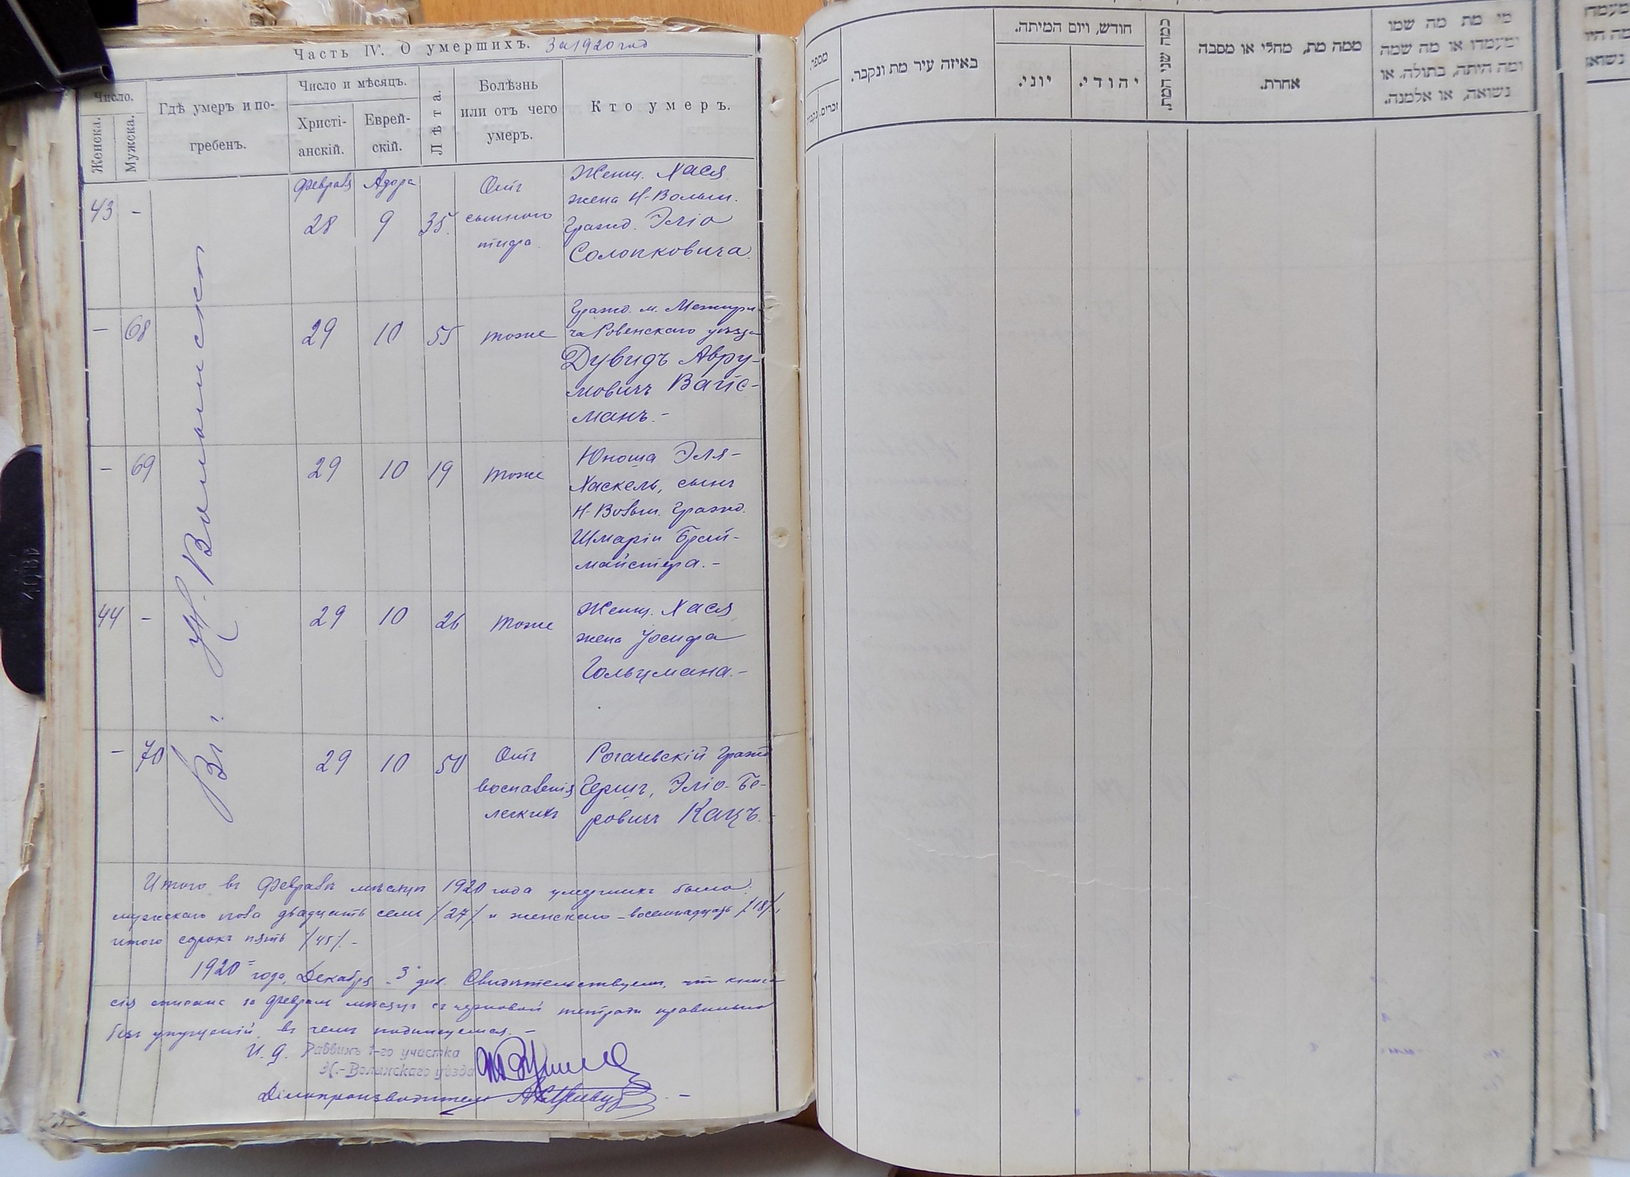 Часть IV. О умершихъ. За 1920 год
Число.
Женска.
Мужска.
Гдѣ умеръ и по-
гребенъ.
Число и мѣсяцъ.
Христі-
анскій.
Еврей-
скій.
Лѣта.
Болѣзнь
или отъ чего
умеръ.
Кто умеръ.
Въ г. Н. Волынскѣ
43 -
Февраля Адора
28 9 35.
Отъ
сыпного
тифа.
Женщ. Хася
жена Н-Волын.
Гражд. Эліо
Солопковича
- 68 29 10 55 тоже
Гражд. м. Межири-
ча Ровенскаго уѣзда
Дувидъ Авру-
мовичъ Вайс-
манъ.-
- 69 29 10 19 тоже
Юноша Эля-
Хаскель, сынъ
Н-Волын. Гражд.
Шмаріи Брай-
майстера.-
44 - 29 10 26 тоже
Женщ. Хася
жена Іосифа
Гольцмана.-
- 70 29 10 50
Отъ
воспаленія
легкихъ
Рогачевскій Гражд
Герш, Эліо-Бе-
ровичъ Кацъ.
Итого въ Февралѣ мѣсяцѣ 1920 года умершихъ было:
мужскаго пола двадцать семь /27/ и женскаго - восемнадцать /18/,
итого сорокъ пять /45/.-
1920 года, Декабря 3 дня. Свидѣтельствуемъ, что книга
сія списана за Февраль мѣсяцъ съ черновой тетради правильно
безъ упущеній, въ чемъ подписуемся.-
И. д. Раввинъ 1-го участка
Н.-Волынскаго уѣзда
Дѣлопроизводитель
מספר
זכרים
נקבות
באיזה עיר מת ונקבר.
חודש, ויום המיתה.
יוני.
יהודי.
כמה שני המת.
ממה מת, מחלי או מסבה
אחרת.
מי מת מה שמו
ומעמדו או מה שמה
ומה היתה, בתולה, או
נשואה, או אלמנה.